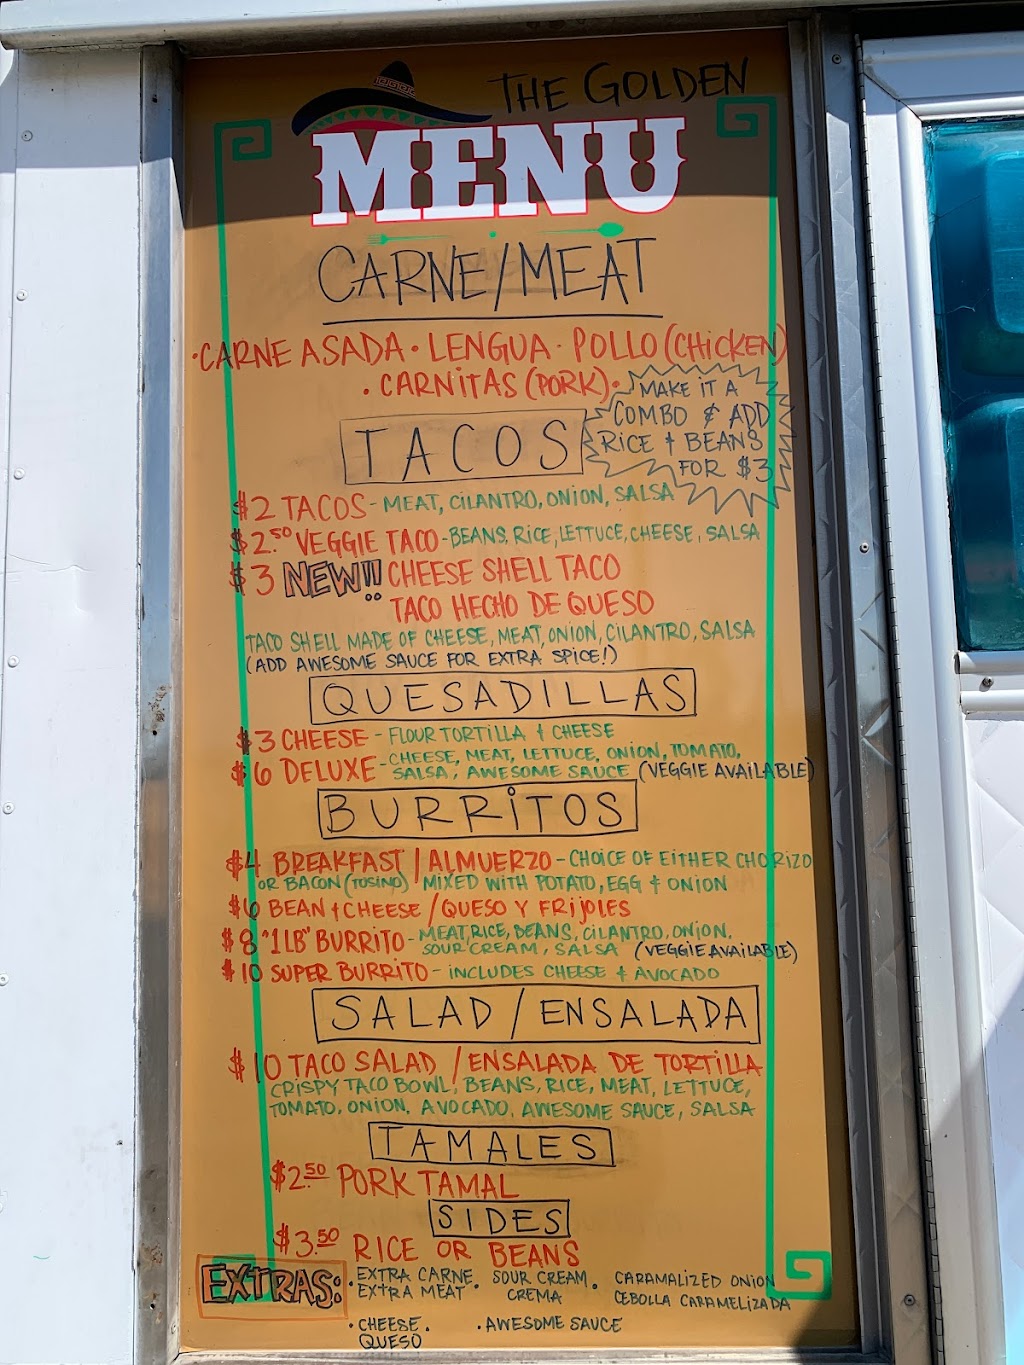 THE GOLDEN
MENU
CARNE/MEAT
·CARNE ASADA · LENGUA · POLLO (CHICKEN)
· CARNITAS (PORK) ·
MAKE IT A
COMBO & ADD
RICE + BEANS
FOR $3
TACOS
$2 TACOS - MEAT, CILANTRO, ONION, SALSA
$2.50 VEGGIE TACO - BEANS, RICE, LETTUCE, CHEESE, SALSA
$3 NEW!! CHEESE SHELL TACO
TACO HECHO DE QUESO
TACO SHELL MADE OF CHEESE, MEAT, ONION, CILANTRO, SALSA
(ADD AWESOME SAUCE FOR EXTRA SPICE!)
QUESADILLAS
$3 CHEESE - FLOUR TORTILLA + CHEESE
$6 DELUXE - CHEESE, MEAT, LETTUCE, ONION, TOMATO,
SALSA, AWESOME SAUCE (VEGGIE AVAILABLE)
BURRITOS
$4 BREAKFAST / ALMUERZO - CHOICE OF EITHER CHORIZO
OR BACON (TOSINO) MIXED WITH POTATO, EGG + ONION
$6 BEAN + CHEESE / QUESO Y FRIJOLES
$8 "1LB" BURRITO - MEAT, RICE, BEANS, CILANTRO, ONION,
SOUR CREAM, SALSA (VEGGIE AVAILABLE)
$10 SUPER BURRITO - INCLUDES CHEESE + AVOCADO
SALAD / ENSALADA
$10 TACO SALAD / ENSALADA DE TORTILLA
CRISPY TACO BOWL, BEANS, RICE, MEAT, LETTUCE,
TOMATO, ONION, AVOCADO, AWESOME SAUCE, SALSA
TAMALES
$2.50 PORK TAMAL
SIDES
$3.50 RICE OR BEANS
EXTRAS:
· EXTRA CARNE
EXTRA MEAT
· SOUR CREAM
CREMA
· CARAMALIZED ONION
CEBOLLA CARAMELIZADA
· CHEESE
QUESO
· AWESOME SAUCE